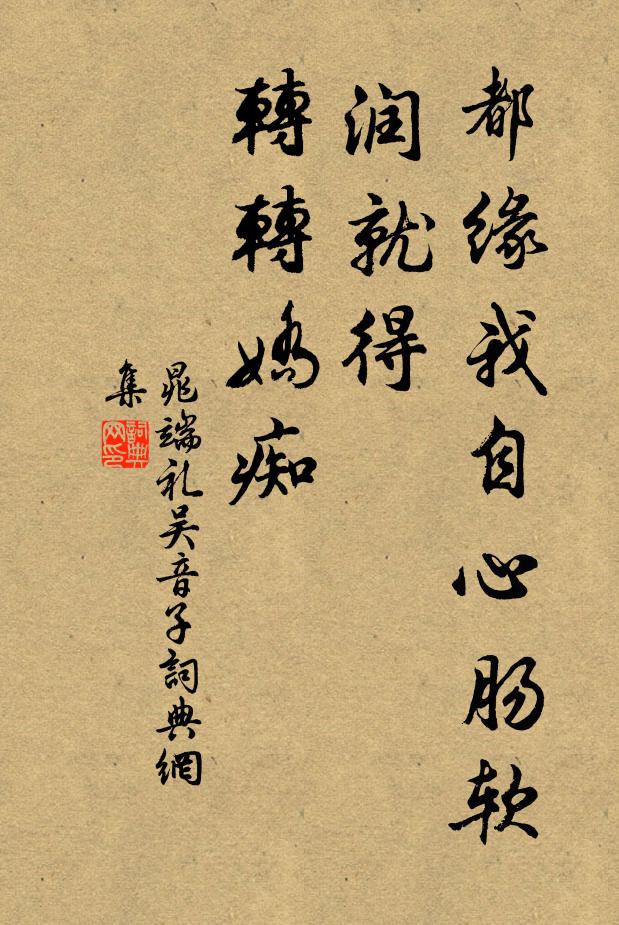 都緣我自心肠软
润就得
轉轉嬌痴
晁端礼吴音子詞典網
集
詞典
网印